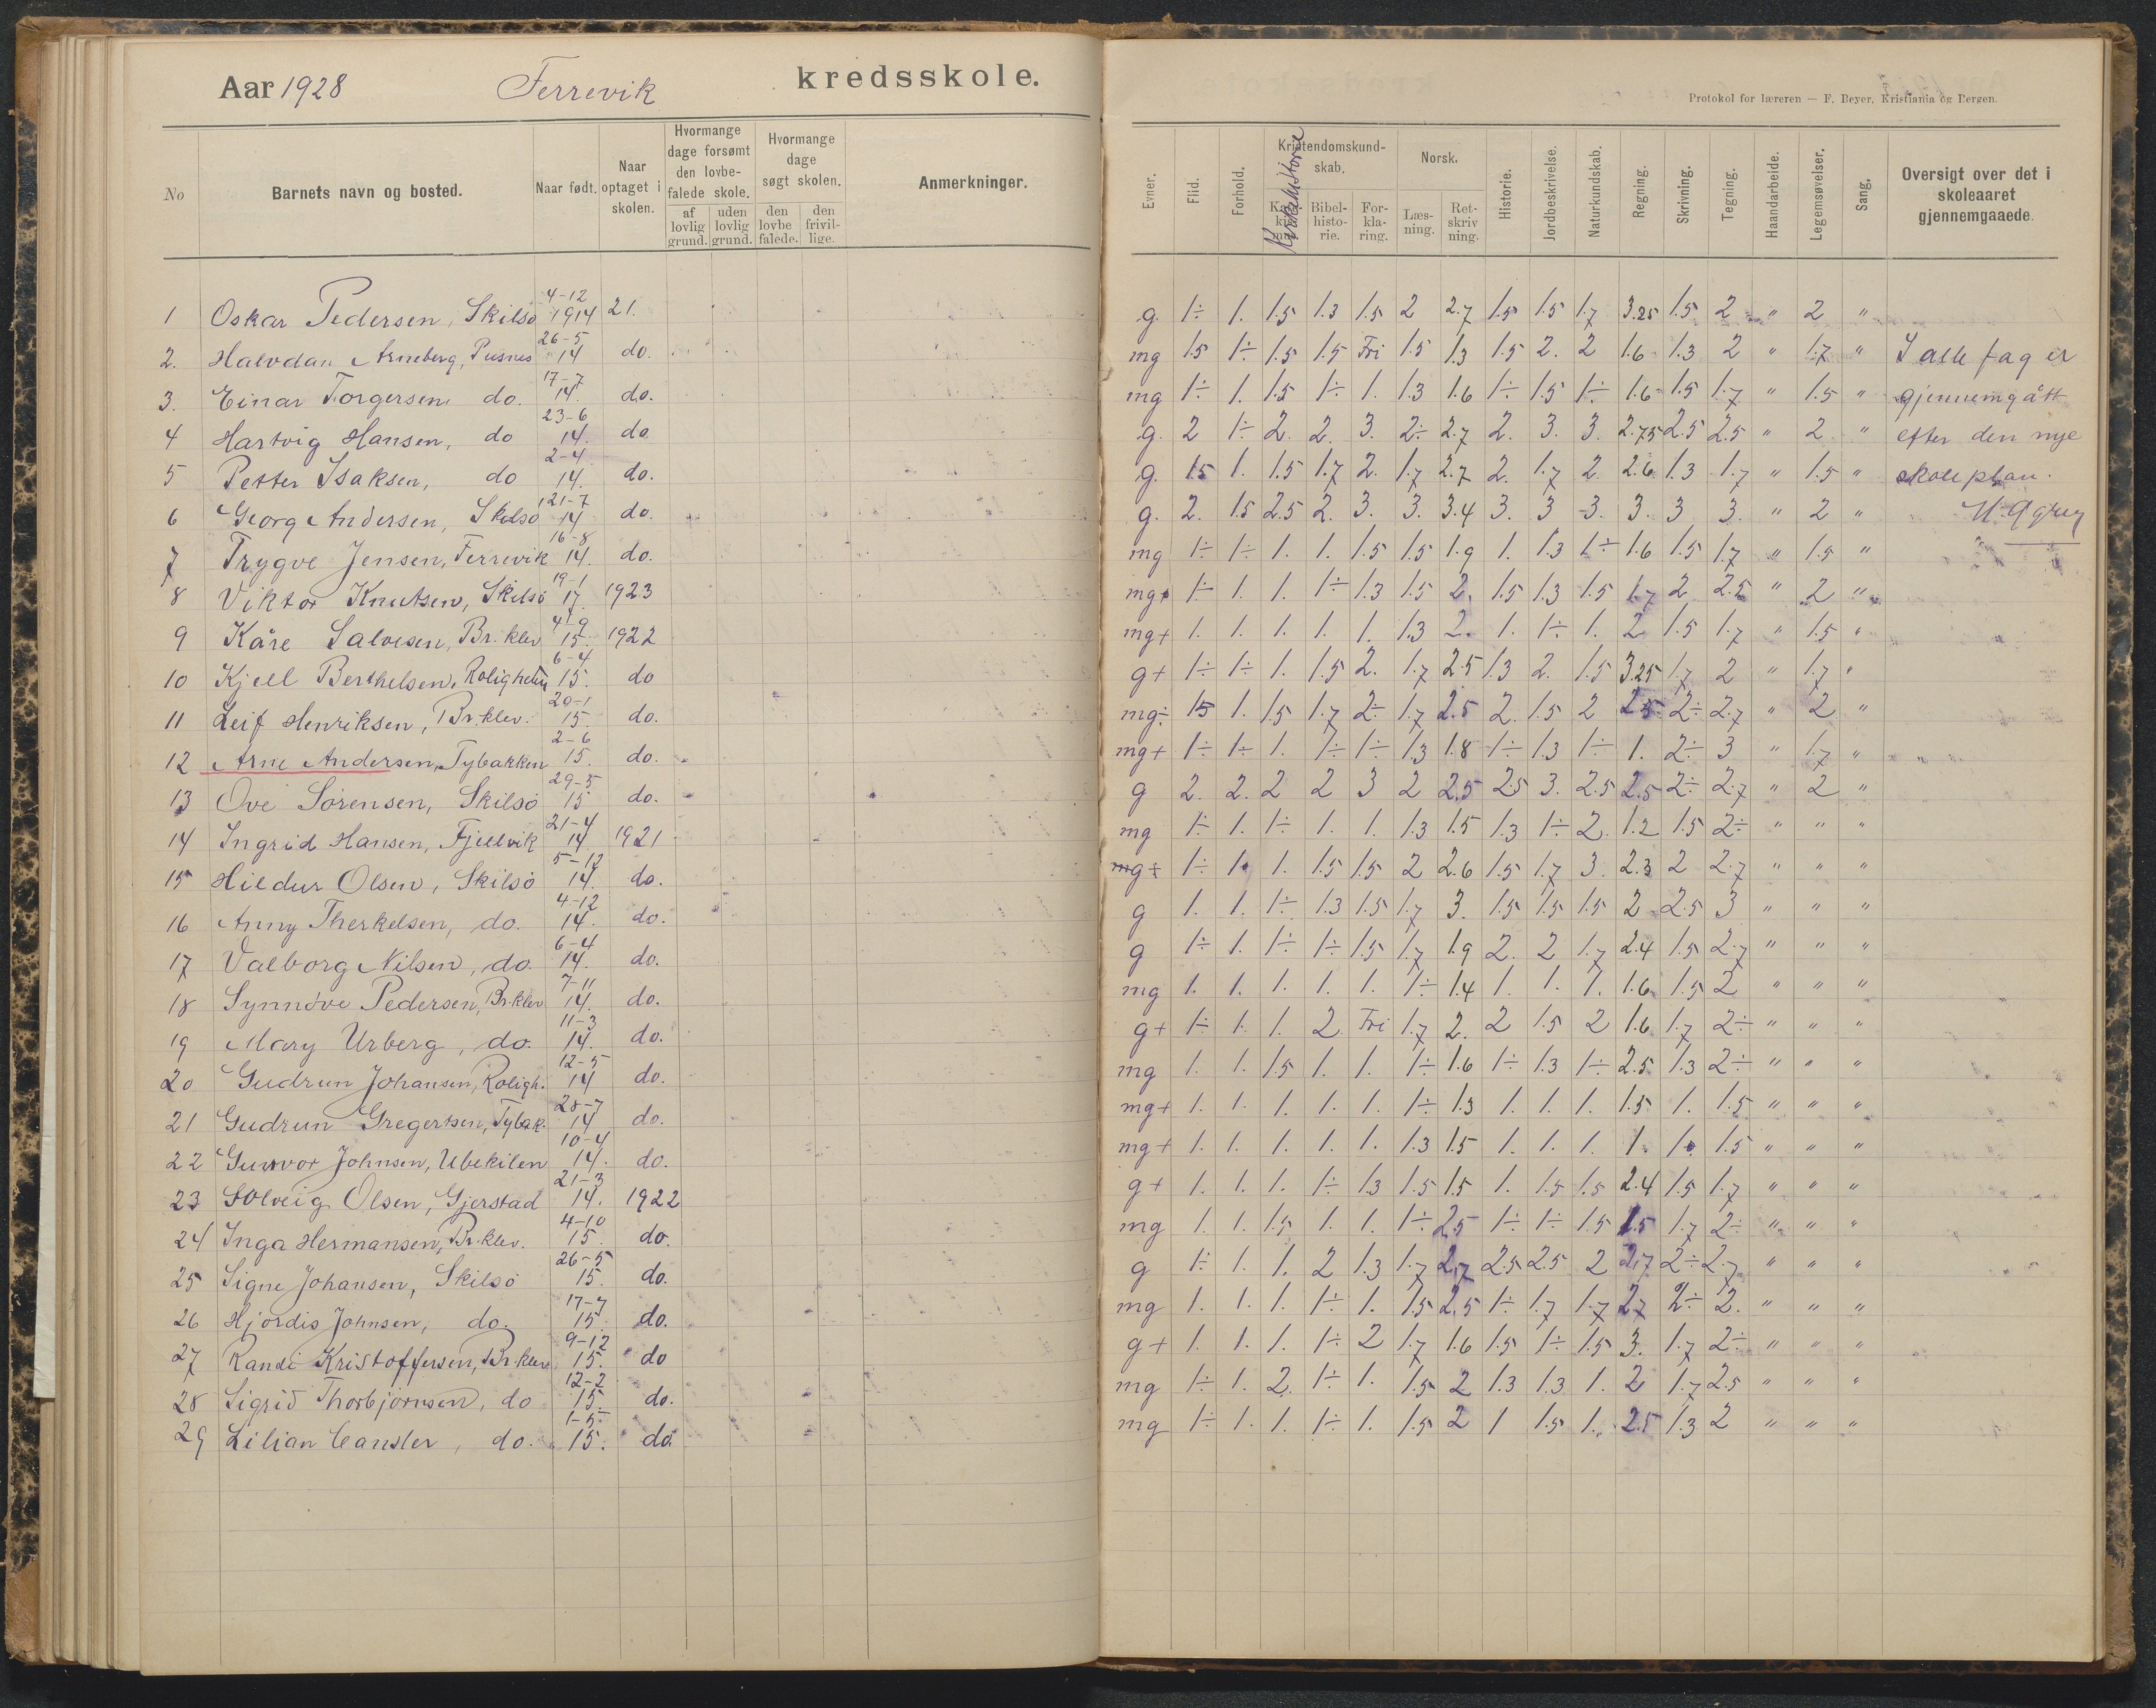 Aar 1928 Ferrevik kredsskole.
Protokol for læreren — F. Beyer, Kristiania og Bergen.
No Barnets navn og bosted. Naar født. Naar optaget i skolen. Hvormange dage forsømt den lovbefalede skole. af lovlig grund. uden lovlig grund. Hvormange dage søgt skolen. den lovbefalede. den frivillige. Anmerkninger.
Evner. Flid. Forhold. Kristendomskundskab. Bibelhistorie. Forklaring. Norsk. Læsning. Retskrivning. Historie. Jordbeskrivelse. Naturkundskab. Regning. Skrivning. Tegning. Haandarbeide. Legemsøvelser. Sang. Oversigt over det i skoleaaret gjennemgaaede.
1 Oskar Pedersen, Skilsö 4-12 1914 21. g. 1÷ 1. 1.5 1.3 1.5 2 2.7 1.5 1.5 1.7 3.25 1.5 2 " 2 "
2. Halvdan Arneberg, Pusnes 26-5 14 do. mg 1.5 1÷ 1.5 1.5 Fri 1.5 1.3 1.5 2. 2 1.6 1.3 2 " 1.7 " I alle fag er
3. Einar Torgersen do. 17-7 14. do. mg 1÷ 1. 1.5 1÷ 1. 1.3 1.6 1÷ 1.5 1÷ 1.6 1.5 1.7 " 1.5 " gjennemgått
4 Hartvig Hansen, do 23-6 14. do g. 2 1÷ 2. 2. 3. 2÷ 2.7 2. 3. 3. 2.75 2.5 2.5 " 2 " efter den nye
5 Petter Isaksen, do 2-4 14. do. g. 1.5 1. 1.5 1.7 2. 1.7 2.7 2. 1.7 2. 2.6 1.3 1.7 " 1.5 " skoleplan.
6 Georg Andersen, Skilsö 21-7 14 do. g. 2. 1.5 2.5 2. 3. 3. 3.4 3. 3 3. 3. 3 3. " 2 "
7 Trygve Jensen, Ferrevik 16-8 14. do. mg 1÷ 1÷ 1. 1. 1.5 1.5 1.9 1. 1.3 1÷ 1.6 1.5 1.7 " 1.5 "
8 Viktor Knutsen, Skilsö 19-1 17. 1923 mg+ 1÷ 1. 1. 1÷ 1.3 1.5 2. 1.5 1.3 1.5 1.7 2 2.5 " 2 "
9 Kåre Salvesen, Br. klev 4-9 15. 1922 mg+ 1. 1. 1. 1. 1. 1.3 2. 1. 1÷ 1. 2 1.5 1.7 " 1.5 "
10 Kjell Berthelsen, Rolighet 6-4 15. do g+ 1÷ 1÷ 1. 1.5 2. 1.7 2.5 1.3 2. 1.5 3.25 1.7 2 " 1.7 "
11 Leif Henriksen, Br. klev. 20-1 15. do. mg÷ 1.5 1. 1.5 1.7 2÷ 1.7 2.5 2. 1.5 2 2.5 2÷ 2.7 " 2 "
12 Arne Andersen, Tybakken 2-6 15. do. mg+ 1÷ 1÷ 1. 1÷ 1÷ 1.3 1.8 1÷ 1.3 1÷ 1. 2÷ 3 " 1.7 "
13 Ove Sörensen, Skilsö 29-5 15 do. g 2. 2. 2 2 3 2 2.5 2.5 3. 2.5 2.5 2÷ 2.7 " 2 "
14 Ingrid Hansen, Fjellvik 21-4 14 1921 mg 1÷ 1. 1÷ 1. 1. 1.3 1.5 1.3 1÷ 2. 1.2 1.5 2÷ " " "
15 Hildur Olsen, Skilsö 5-12 14. do. g+ 1÷ 1. 1. 1.5 1.5 2 2.6 1.5 1.7 3. 2.3 2 2.7 " " "
16 Anny Therkelsen, do. 4-12 14. do. g 1. 1. 1÷ 1.3 1.5 1.7 3. 1.5 1.5 1.5 2 2.5 3 " " "
17 Valborg Nilsen, do. 6-4 14. do. g 1÷ 1. 1÷ 1÷ 1.5 1.7 1.9 2. 2 1.7 2.4 1.5 2.7 " " "
18 Synnöve Pedersen, Br. klev 7-11 14. do. mg 1. 1. 1. 1. 1. 1÷ 1.4 1. 1. 1. 1.6 1.5 2 " " "
19 Mary Urberg, do. 11-3 14. do. g+ 1÷ 1. 1. 2. Fri 1.7 2. 2 1.5 2 1.6 1.7 2÷ " " "
20 Gudrun Johansen, Roligh. 12-5 14 do. mg 1. 1. 1.5 1. 1. 1÷ 1.6 1÷ 1.3 1÷ 2.5 1.3 2÷ " " "
21 Gudrun Gregertsen, Tybak. 28-7 14 do. mg+ 1. 1. 1. 1. 1. 1÷ 1.3 1. 1. 1. 1.5 1. 1.5 " " "
22 Gunvor Johnsen, Ubekilen 10-4 14. do. mg+ 1. 1. 1. 1. 1. 1.3 1.5 1. 1. 1. 1. 1. 1.5 " " "
23 Solveig Olsen, Gjerstad 21-3 14. 1922 g+ 1. 1. 1. 1÷ 1.3 1.5 1.5 1. 1.5 1.5 2.4 1.5 1.7 " " "
24 Inga Hermansen, Br. klev. 4-10 15. do. mg 1. 1. 1.5 1. 1. 1÷ 2.5 1÷ 1÷ 1.5 1.5 1.7 2÷ " " "
25 Signe Johansen, Skilsö 26-5 15. do. g 1÷ 1. 1. 2 1.3 1.7 2.7 2.5 2.5 2 2.7 2÷ 2.7 " " "
26 Hjördis Johnsen, do. 17-7 15. do. mg 1. 1. 1. 1÷ 1. 1.5 2.5 1÷ 1.7 1.7 2.7 2÷ 2. " " "
27 Randi Kristoffersen, Br. klev 9-12 15. do g+ 1. 1. 1. 1÷ 2 1.7 1.6 1.5 1÷ 1.5 3. 1.7 2÷ " " "
28 Sigrid Thorbjörnsen, do 12-2 15. do. mg 1÷ 1. 2. 1÷ 1. 1.5 2 1.3 1.3 1. 2 1.7 2.5 " " "
29 Lilian Cansler, do. 1-5 15. do. mg 1÷ 1. 1. 1÷ 1. 1.5 2 1 1.5 1. 2.5 1.3 2 " " "